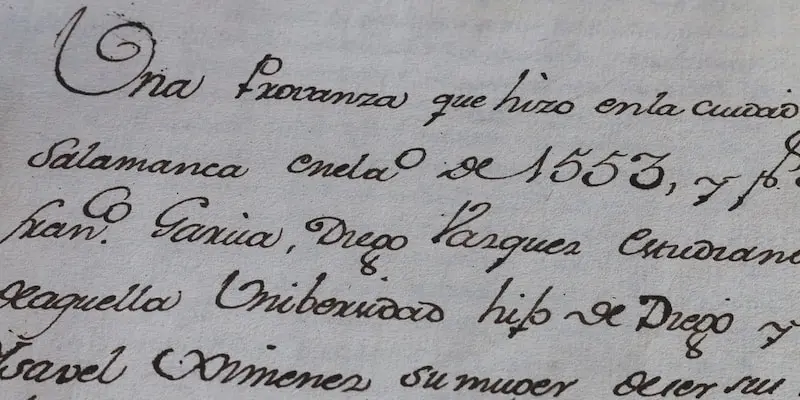 Una Provanza que hizo enla ciudad
Salamanca enel aº de 1553, y pº
franco. Garcia, Diego Vazquez Estudian
deaquella Unibersidad hijo de Diego y
Ysavel Ximenez su muger deser sus